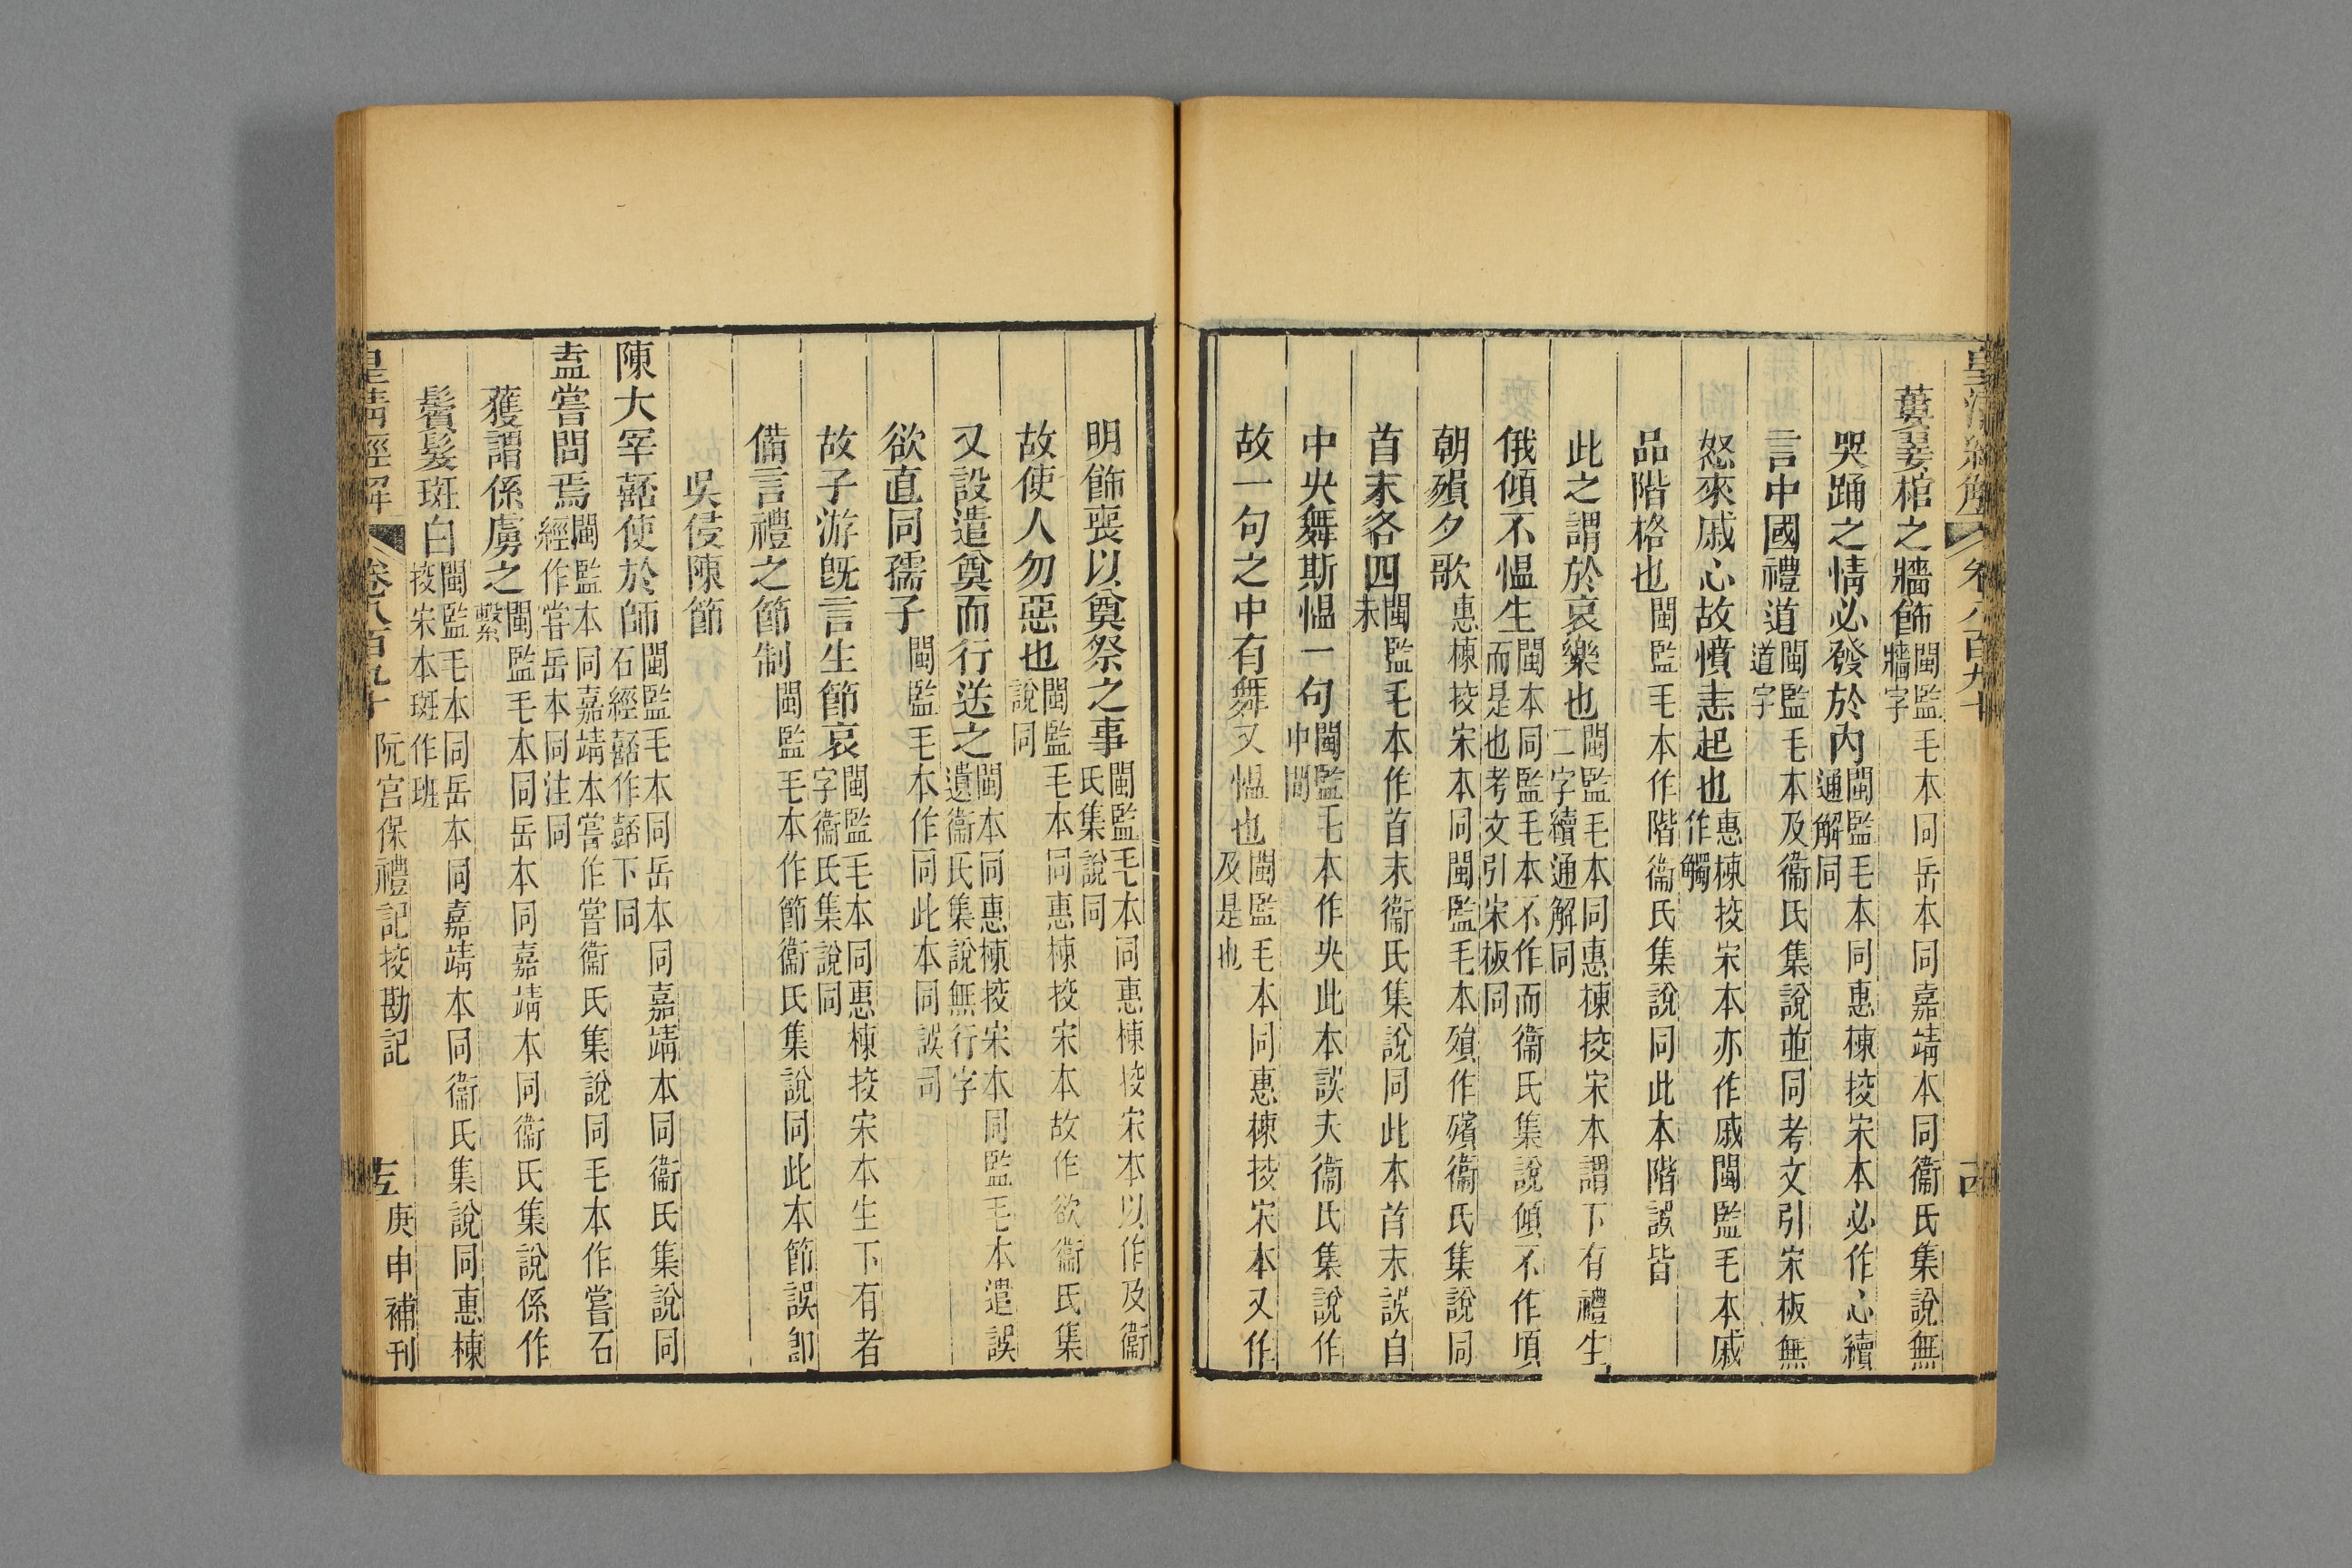 皇清經解 卷八百九十 古
蔞翣棺之牆飾閩監毛本同岳本同嘉靖本同衞氏集說無牆字
哭踊之情必發於內閩監毛本同惠棟挍宋本必作心續通解同
言中國禮道閩監毛本及衞氏集說並同考文引宋板無道字
怒來戚心故憤恚起也惠棟挍宋本亦作戚閩監毛本戚作觸
品階格也閩監毛本作階衞氏集說同此本階誤皆
此之謂於哀樂也閩監毛本同惠棟挍宋本謂下有禮生二字續通解同
俄傾不慍生閩本同監毛本不作而衞氏集說傾不作頃而是也考文引宋板同
朝殞夕歌惠棟挍宋本同閩監毛本殞作殯衞氏集說同
首末各四閩監毛本作首末衞氏集說同此本首末誤自未
中央舞斯慍一句閩監毛本作央此本誤夫衞氏集說作中間
故一句之中有舞又慍也閩監毛本同惠棟挍宋本又作及是也
明飾喪以奠祭之事閩監毛本同惠棟挍宋本以作及衞氏集說同
故使人勿惡也閩監毛本同惠棟挍宋本故作欲衞氏集說同
又設遣奠而行送之閩本同惠棟挍宋本同監毛本遣誤遺衞氏集說無行字
欲直同孺子閩監毛本作同此本同誤司
故子游旣言生節哀閩監毛本同惠棟挍宋本生下有者字衞氏集說同
備言禮之節制閩監毛本作節衞氏集說同此本節誤卽
吳侵陳節
陳大宰嚭使於師閩監毛本同岳本同嘉靖本同衞氏集說同石經嚭作嚭下同
盍嘗問焉閩監本同嘉靖本嘗作甞衞氏集說同毛本作嘗石經作甞岳本同注同
獲謂係虜之閩監毛本同岳本同嘉靖本同衞氏集說係作繫
鬢髮斑白閩監毛本同岳本同嘉靖本同衞氏集說同惠棟挍宋本斑作班
皇清經解 卷八百九十 阮宮保禮記挍勘記 庚申補刊